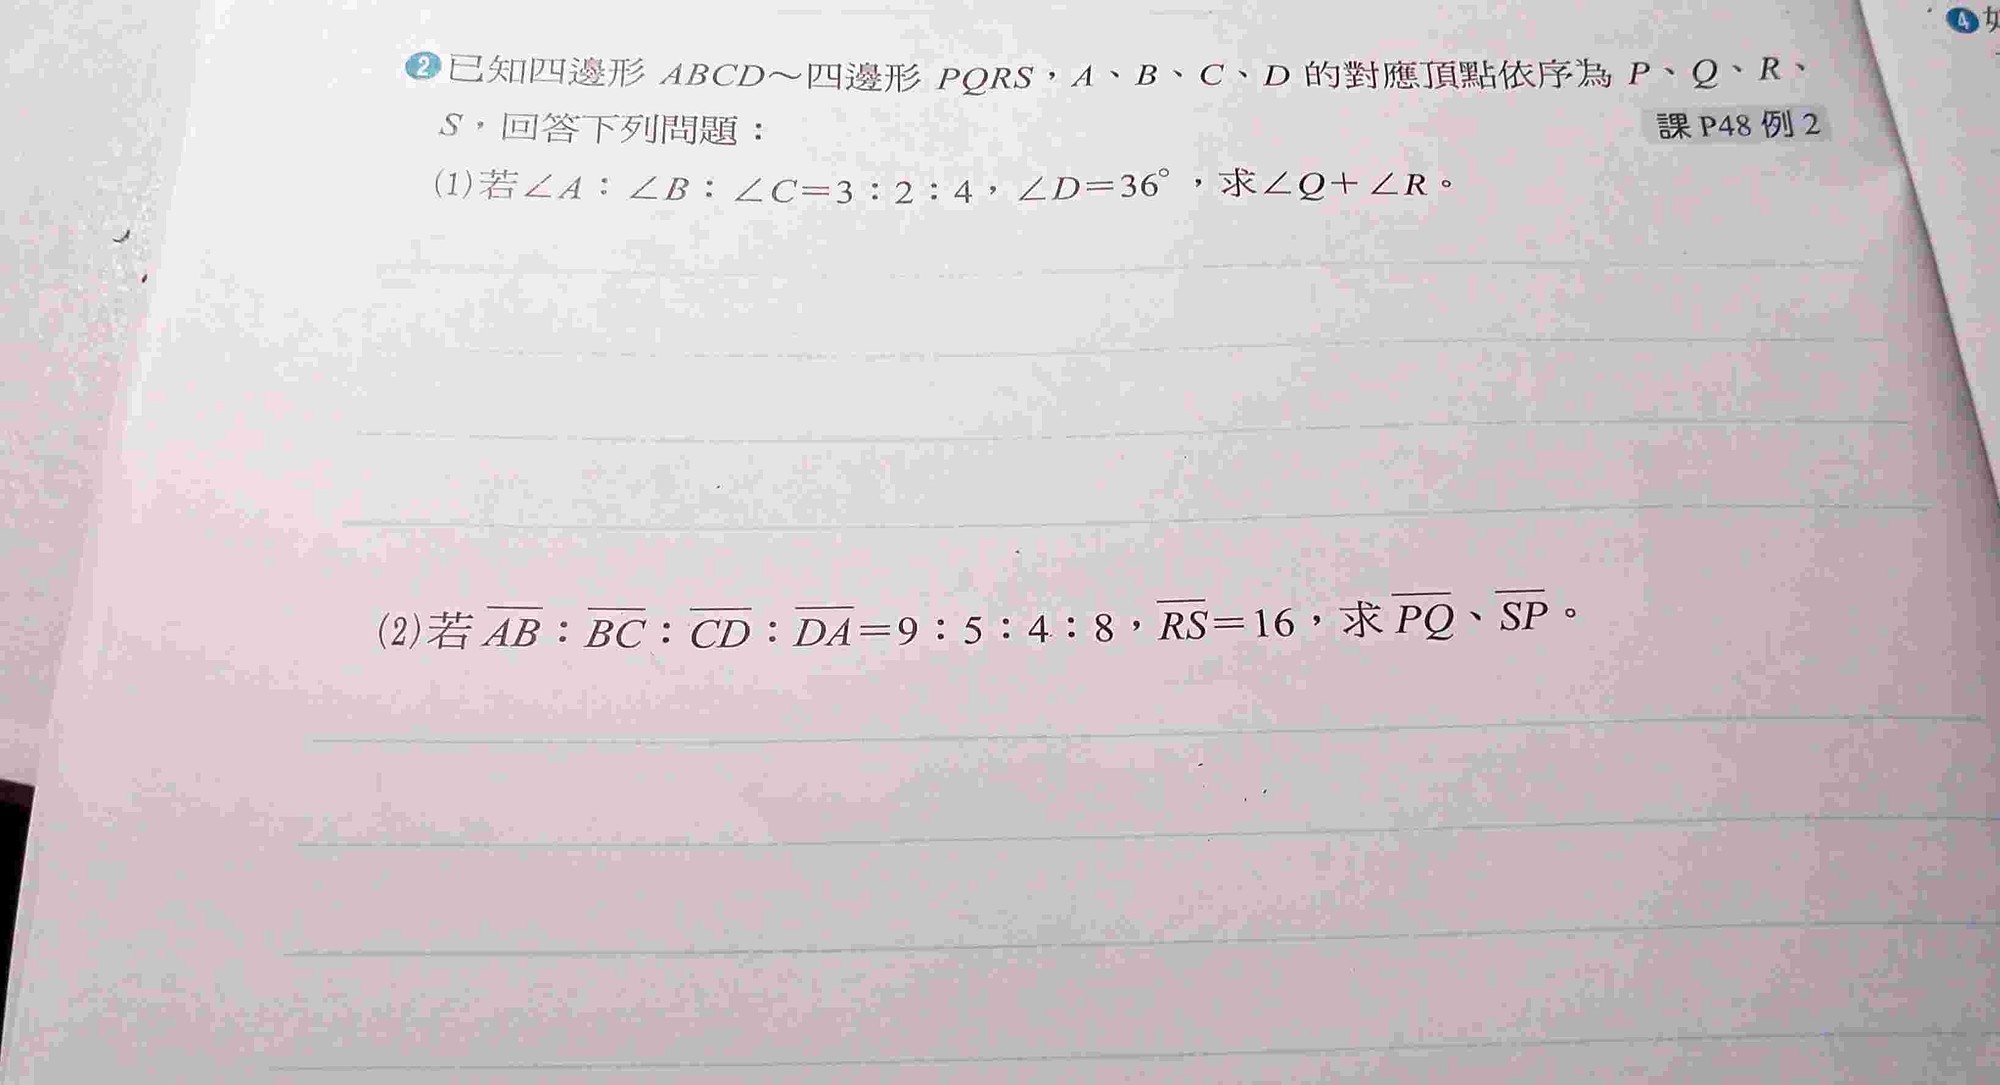 2 已知四邊形 ABCD～四邊形 PQRS，A、B、C、D 的對應頂點依序為 P、Q、R、
S，回答下列問題：
課 P48 例 2
(1)若∠A：∠B：∠C=3：2：4，∠D=36°，求∠Q+∠R。
(2)若 A̅B̅：B̅C̅：C̅D̅：D̅A̅=9：5：4：8，R̅S̅=16，求 P̅Q̅、S̅P̅。
4